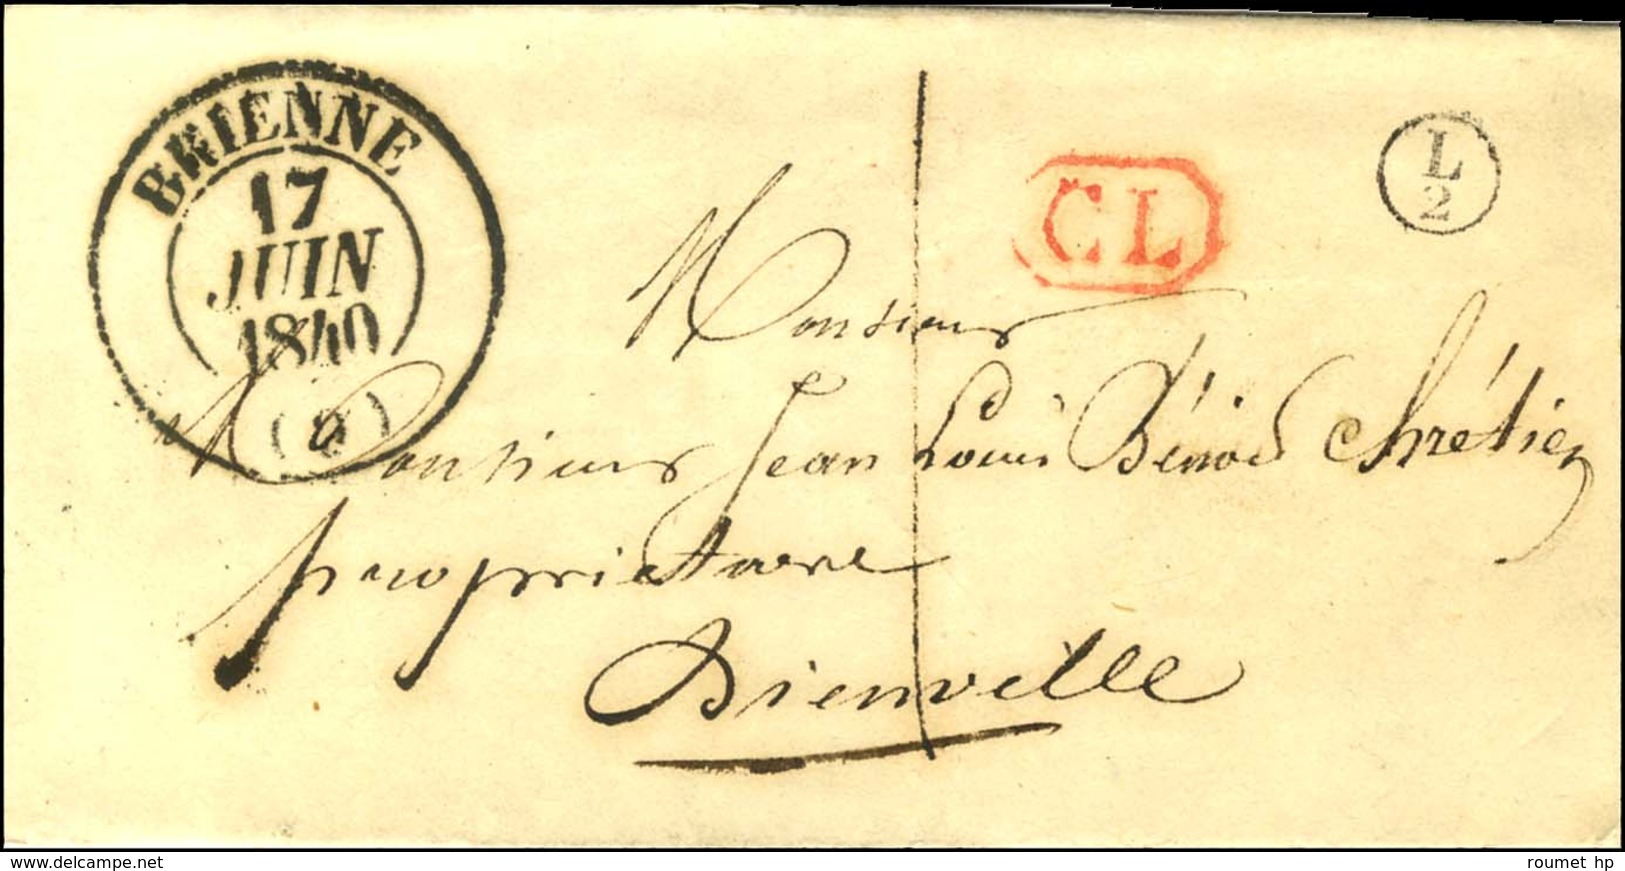 BRIENNE
17
JUIN
1840
(9)
CL
L
2
Monsieur
Monsieur Jean Louis Bénoit Chrétien
propriétaire
Dienville
www.delcampe.net
roumet hp